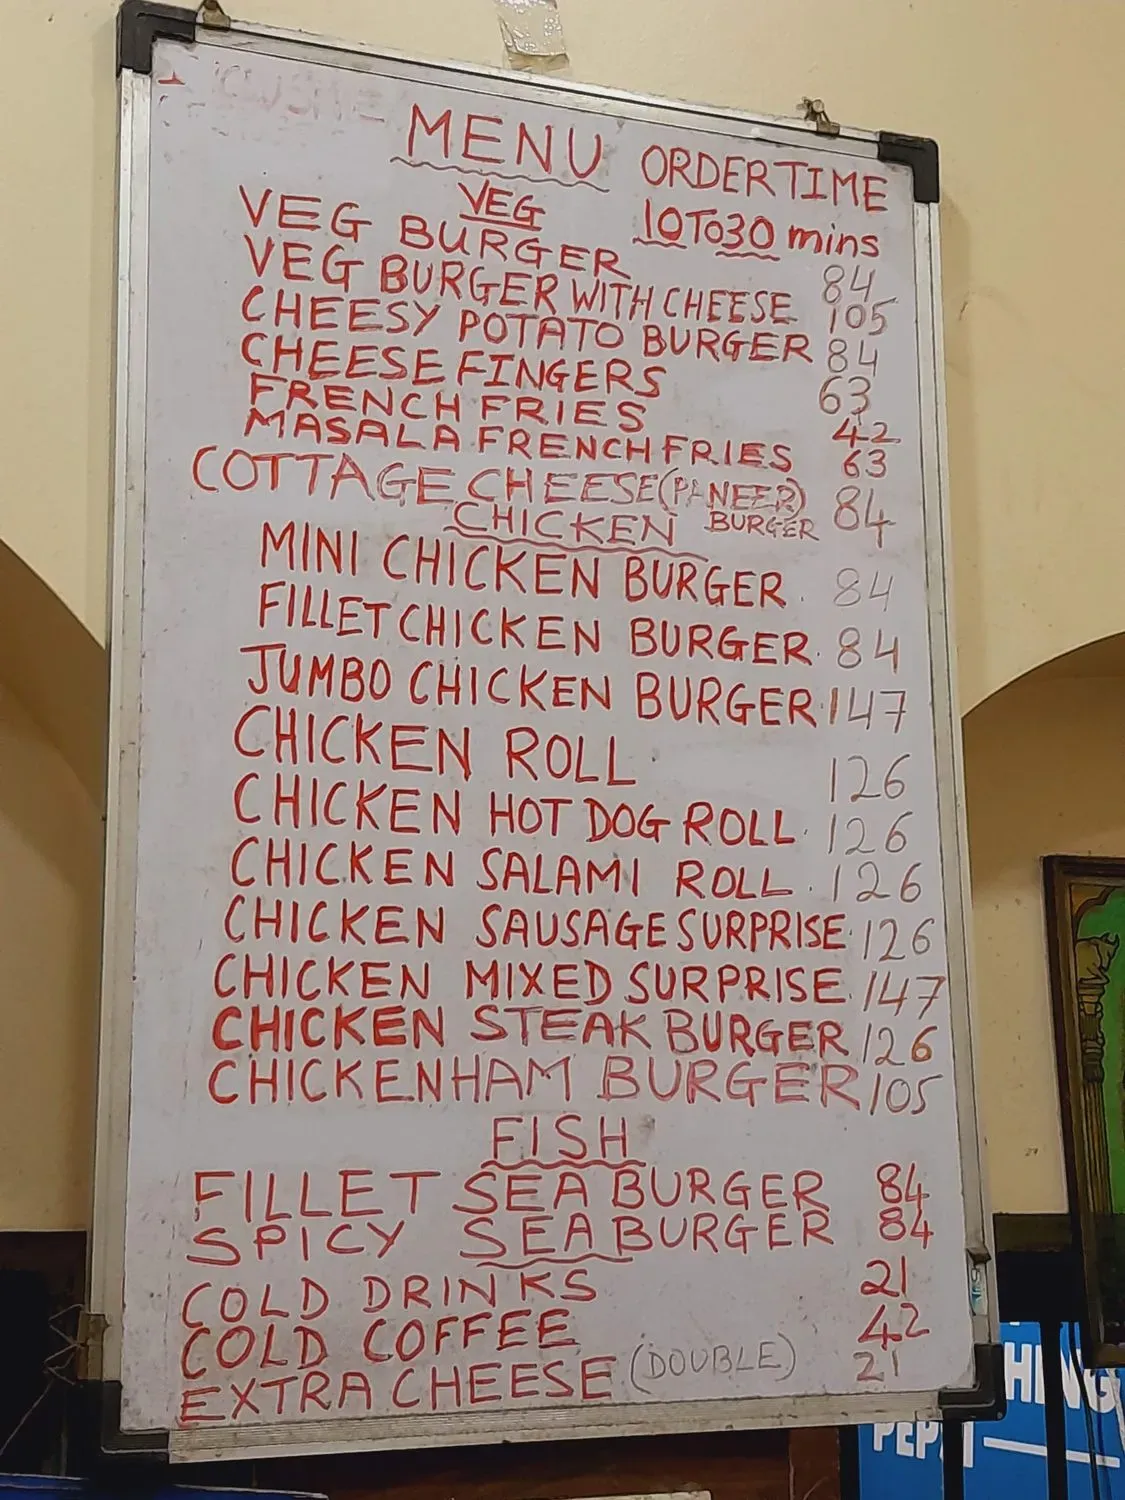 MENU ORDER TIME
VEG 10 TO 30 mins
VEG BURGER 84
VEG BURGER WITH CHEESE 105
CHEESY POTATO BURGER 84
CHEESE FINGERS 63
FRENCH FRIES 42
MASALA FRENCH FRIES 63
COTTAGE CHEESE (PANEER) BURGER 84
CHICKEN
MINI CHICKEN BURGER. 84
FILLET CHICKEN BURGER. 84
JUMBO CHICKEN BURGER. 147
CHICKEN ROLL 126
CHICKEN HOT DOG ROLL. 126
CHICKEN SALAMI ROLL. 126
CHICKEN SAUSAGE SURPRISE. 126
CHICKEN MIXED SURPRISE. 147
CHICKEN STEAK BURGER 126
CHICKEN HAM BURGER 105
FISH
FILLET SEA BURGER 84
SPICY SEA BURGER 84
COLD DRINKS 21
COLD COFFEE 42
EXTRA CHEESE (DOUBLE) 21